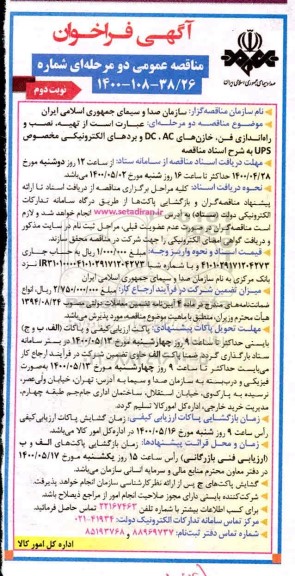 آگهی فراخوان
مناقصه عمومی دو مرحله‌ای شماره
۱۴۰۰-۱۰۸-۳۸/۲۶
نوبت دوم
صدا و سیمای جمهوری اسلامی ایران
نام سازمان مناقصه‌گزار: سازمان صدا و سیمای جمهوری اسلامی ایران
موضوع مناقصه دو مرحله‌ای: عبارت است از تهیه، نصب و
راه‌اندازی فن، خازن‌های DC ، AC و بردهای الکترونیکی مخصوص
UPS به شرح اسناد مناقصه
مهلت دریافت اسناد مناقصه از سامانه ستاد: از ساعت ۱۲ روز دوشنبه مورخ
۱۴۰۰/۰۴/۲۸ حداکثر تا ساعت ۱۶ روز شنبه مورخ ۱۴۰۰/۰۵/۰۲ می‌باشد.
نحوه دریافت اسناد: کلیه مراحل برگزاری مناقصه از دریافت اسناد تا ارائه
پیشنهاد مناقصه‌گران و بازگشایی پاکت‌ها از طریق درگاه سامانه تدارکات
الکترونیکی دولت (ستاد) به آدرس www.setadiran.ir انجام خواهد شد و لازم
است مناقصه‌گران در صورت عدم عضویت قبلی، مراحل ثبت نام در سایت مذکور
و دریافت گواهی امضای الکترونیکی را جهت شرکت در مناقصه محقق سازند.
قیمت اسناد و نحوه واریز وجه: مبلغ ۱/۰۰۰/۰۰۰ ریال به حساب جاری
بانک مرکزی به نام سازمان صدا و سیمای جمهوری اسلامی ایران
میزان تضمین شرکت در فرآیند ارجاع کار: مبلغ ۲/۷۵۰/۰۰۰/۰۰۰ ریال، انواع
ضمانت‌نامه‌های مندرج در ماده ۴ آیین‌نامه تضمین معاملات دولتی مصوب ۱۳۹۴/۰۸/۲۴
هیأت محترم وزیران، منطبق با ماهیت موضوع مناقصه، مورد پذیرش می‌باشد.
مهلت تحویل پاکات پیشنهادی: پاکت ارزیابی کیفی و پاکات (الف، ب و ج)
بایستی حداکثر تا ساعت ۹ روز چهارشنبه مورخ ۱۴۰۰/۰۵/۱۳ در بستر سامانه
ستاد بارگذاری گردد. ضمنا پاکت الف حاوی تضمین شرکت در فرآیند ارجاع کار
می‌بایست حداکثر تا ساعت ۹ روز چهارشنبه مورخ ۱۴۰۰/۰۵/۱۳ به‌صورت
فیزیکی و دربسته به سازمان صدا و سیما به آدرس: تهران، خیابان ولی‌عصر،
نرسیده به پارک‌وی، خیابان استقلال، ساختمان اداری جام‌جم، طبقه چهارم،
مدیریت خرید خارجی، اداره کل امور کالا تسلیم گردد.
زمان بازگشایی پاکات ارزیابی کیفی: زمان گشایش پاکات ارزیابی کیفی
رأس ساعت ۹ روز شنبه مورخ ۱۴۰۰/۰۵/۱۶ در اداره کل امور کالا می‌باشد.
زمان و محل قرائت پیشنهادها: زمان بازگشایی پاکت‌های الف و ب
(ارزیابی فنی بازرگانی) رأس ساعت ۱۵ روز یکشنبه مورخ ۱۴۰۰/۰۵/۱۷
در دفتر معاون محترم منابع مالی و سرمایه انسانی سازمان می‌باشد.
گشایش پاکت‌های ج پس از ارائه نظر کارشناسی سازمان انجام خواهد پذیرفت.
شرکت‌کننده بایستی دارای مجوز صلاحیت انجام امور از مراجع ذیصلاح باشد.
برای کسب اطلاعات بیشتر با شماره تلفن ۲۲۱۶۷۴۶۳ تماس حاصل فرمایید.
مرکز تماس سامانه تدارکات الکترونیک دولت: ۴۱۹۳۴-۰۲۱
شماره تماس دفتر ثبت‌نام: ۸۸۹۶۹۷۳۷ و ۸۵۱۹۳۷۶۸
اداره کل امور کالا